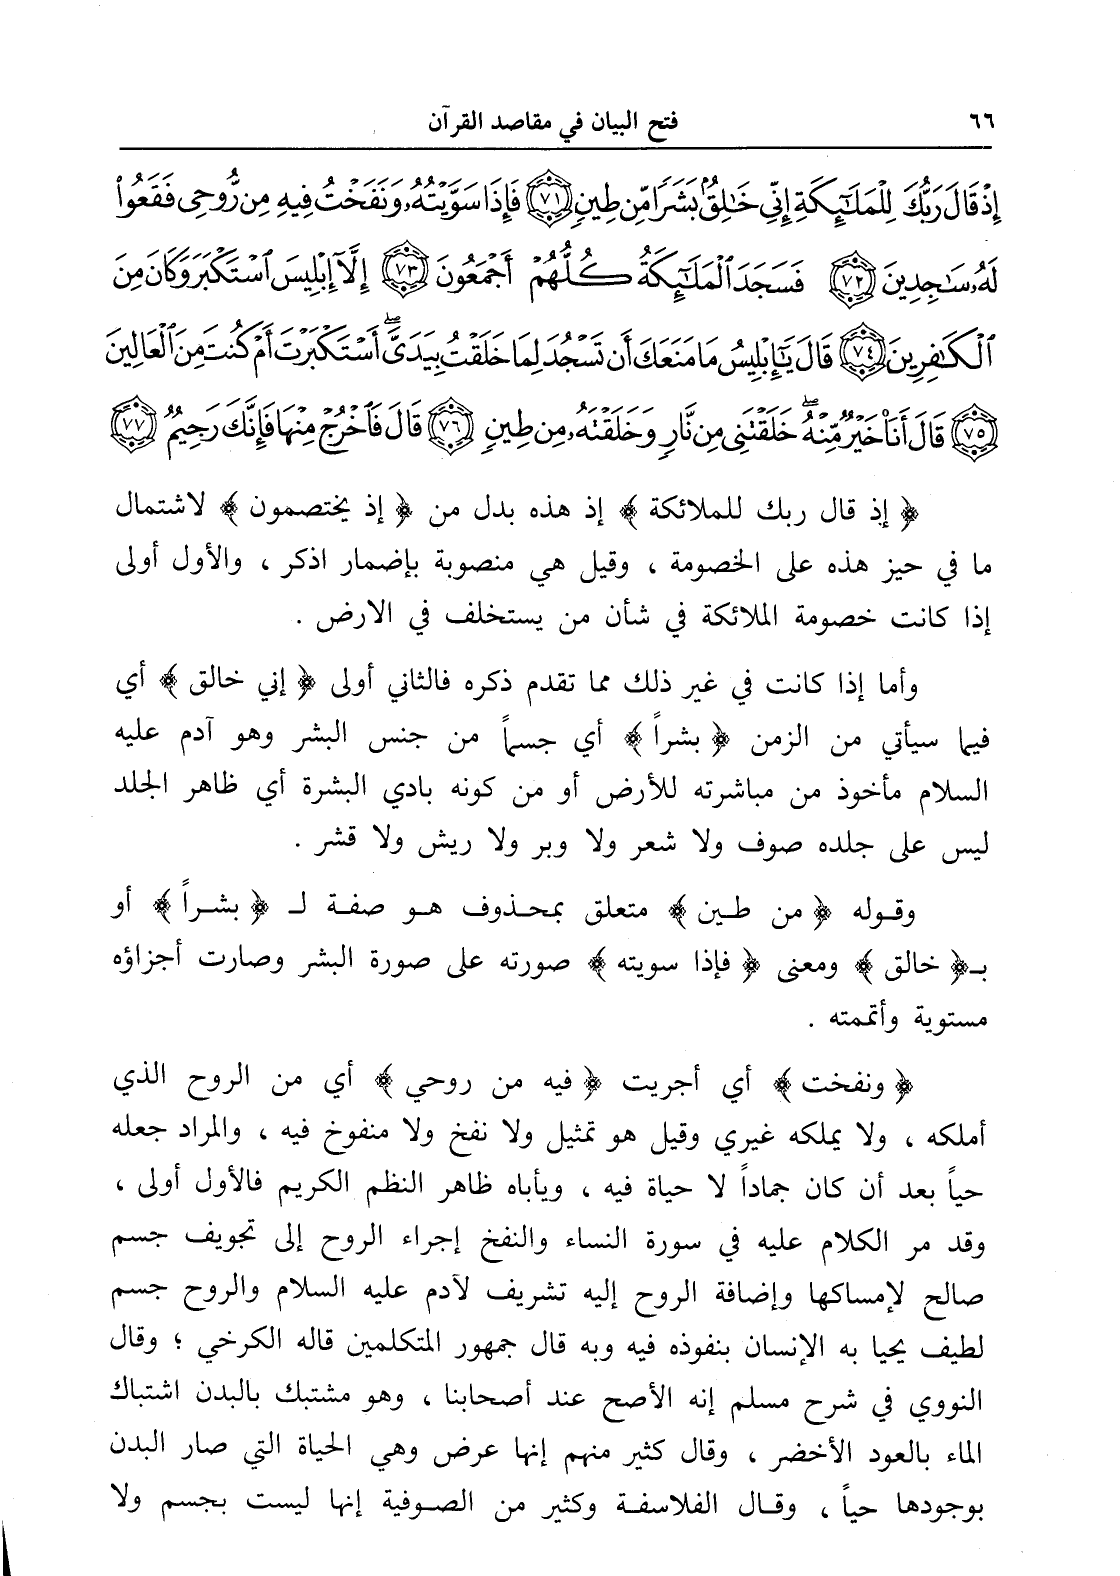 ٦٦ فتح البيان في مقاصد القرآن
إِذْ قَالَ رَبُّكَ لِلْمَلَٰٓئِكَةِ إِنِّى خَٰلِقٌۢ بَشَرًا مِّن طِينٍ ﴿٧١﴾ فَإِذَا سَوَّيْتُهُۥ وَنَفَخْتُ فِيهِ مِن رُّوحِى فَقَعُوا۟
لَهُۥ سَٰجِدِينَ ﴿٧٢﴾ فَسَجَدَ ٱلْمَلَٰٓئِكَةُ كُلُّهُمْ أَجْمَعُونَ ﴿٧٣﴾ إِلَّآ إِبْلِيسَ ٱسْتَكْبَرَ وَكَانَ مِنَ
ٱلْكَٰفِرِينَ ﴿٧٤﴾ قَالَ يَٰٓإِبْلِيسُ مَا مَنَعَكَ أَن تَسْجُدَ لِمَا خَلَقْتُ بِيَدَىَّۖ أَسْتَكْبَرْتَ أَمْ كُنتَ مِنَ ٱلْعَالِينَ
﴿٧٥﴾ قَالَ أَنَا۠ خَيْرٌ مِّنْهُۖ خَلَقْتَنِى مِن نَّارٍ وَخَلَقْتَهُۥ مِن طِينٍ ﴿٧٦﴾ قَالَ فَٱخْرُجْ مِنْهَا فَإِنَّكَ رَجِيمٌ ﴿٧٧﴾
﴿ إذ قال ربك للملائكة ﴾ إذ هذه بدل من ﴿ إذ يختصمون ﴾ لاشتمال
ما في حيز هذه على الخصومة ، وقيل هي منصوبة بإضمار اذكر ، والأول أولى
إذا كانت خصومة الملائكة في شأن من يستخلف في الارض .
وأما إذا كانت في غير ذلك مما تقدم ذكره فالثاني أولى ﴿ إني خالق ﴾ أي
فيما سيأتي من الزمن ﴿ بشراً ﴾ أي جسماً من جنس البشر وهو آدم عليه
السلام مأخوذ من مباشرته للأرض أو من كونه بادي البشرة أي ظاهر الجلد
ليس على جلده صوف ولا شعر ولا وبر ولا ريش ولا قشر .
وقوله ﴿ من طين ﴾ متعلق بمحذوف هو صفة لـ ﴿ بشراً ﴾ أو
بـ﴿ خالق ﴾ ومعنى ﴿ فإذا سويته ﴾ صورته على صورة البشر وصارت أجزاؤه
مستوية وأتممته .
﴿ ونفخت ﴾ أي أجريت ﴿ فيه من روحي ﴾ أي من الروح الذي
أملكه ، ولا يملكه غيري وقيل هو تمثيل ولا نفخ ولا منفوخ فيه ، والمراد جعله
حياً بعد أن كان جماداً لا حياة فيه ، ويأباه ظاهر النظم الكريم فالأول أولى ،
وقد مر الكلام عليه في سورة النساء والنفخ إجراء الروح إلى تجويف جسم
صالح لإمساكها وإضافة الروح إليه تشريف لآدم عليه السلام والروح جسم
لطيف يحيا به الإنسان بنفوذه فيه وبه قال جمهور المتكلمين قاله الكرخي ؛ وقال
النووي في شرح مسلم إنه الأصح عند أصحابنا ، وهو مشتبك بالبدن اشتباك
الماء بالعود الأخضر ، وقال كثير منهم إنها عرض وهي الحياة التي صار البدن
بوجودها حياً ، وقال الفلاسفة وكثير من الصوفية إنها ليست بجسم ولا